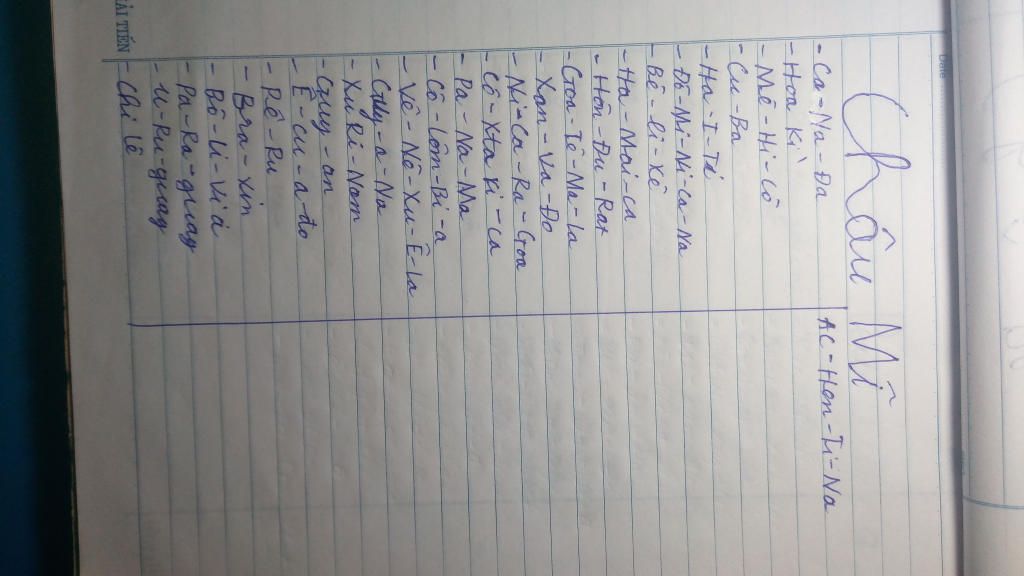 Châu Mĩ
- Ca-Na-Đa
- Hoa Kì
- Mê-Hi-Cô
- Cu-Ba
- Ha-I-Ti
- Đô-Mi-Ni-Ca-Na
- Bê-li-Xê
- Ha-Mai-ca
- Hôn-Đu-Rat
- Goa-Tê-Ma-La
- Xan-Va-Đo
- Ni-Ca-Ra-Goa
- Cô-Xta Ki-ca
- Pa-Na-Ma
- Cô-Lôm-Bi-a
- Vê-Nê-Xu-Ê-la
- Guy-a-Na
- XuRi-Nam
- Guy-an
- Ê-cu-a-đo
- Pê-Ru
- Bra-xin
- Bô-Li-Vi-a
- Pa-Ra-guay
- U-Ru-guay
- Chi Lê
AC-Hen-Ti-Na
ẢI TIẾN
Date